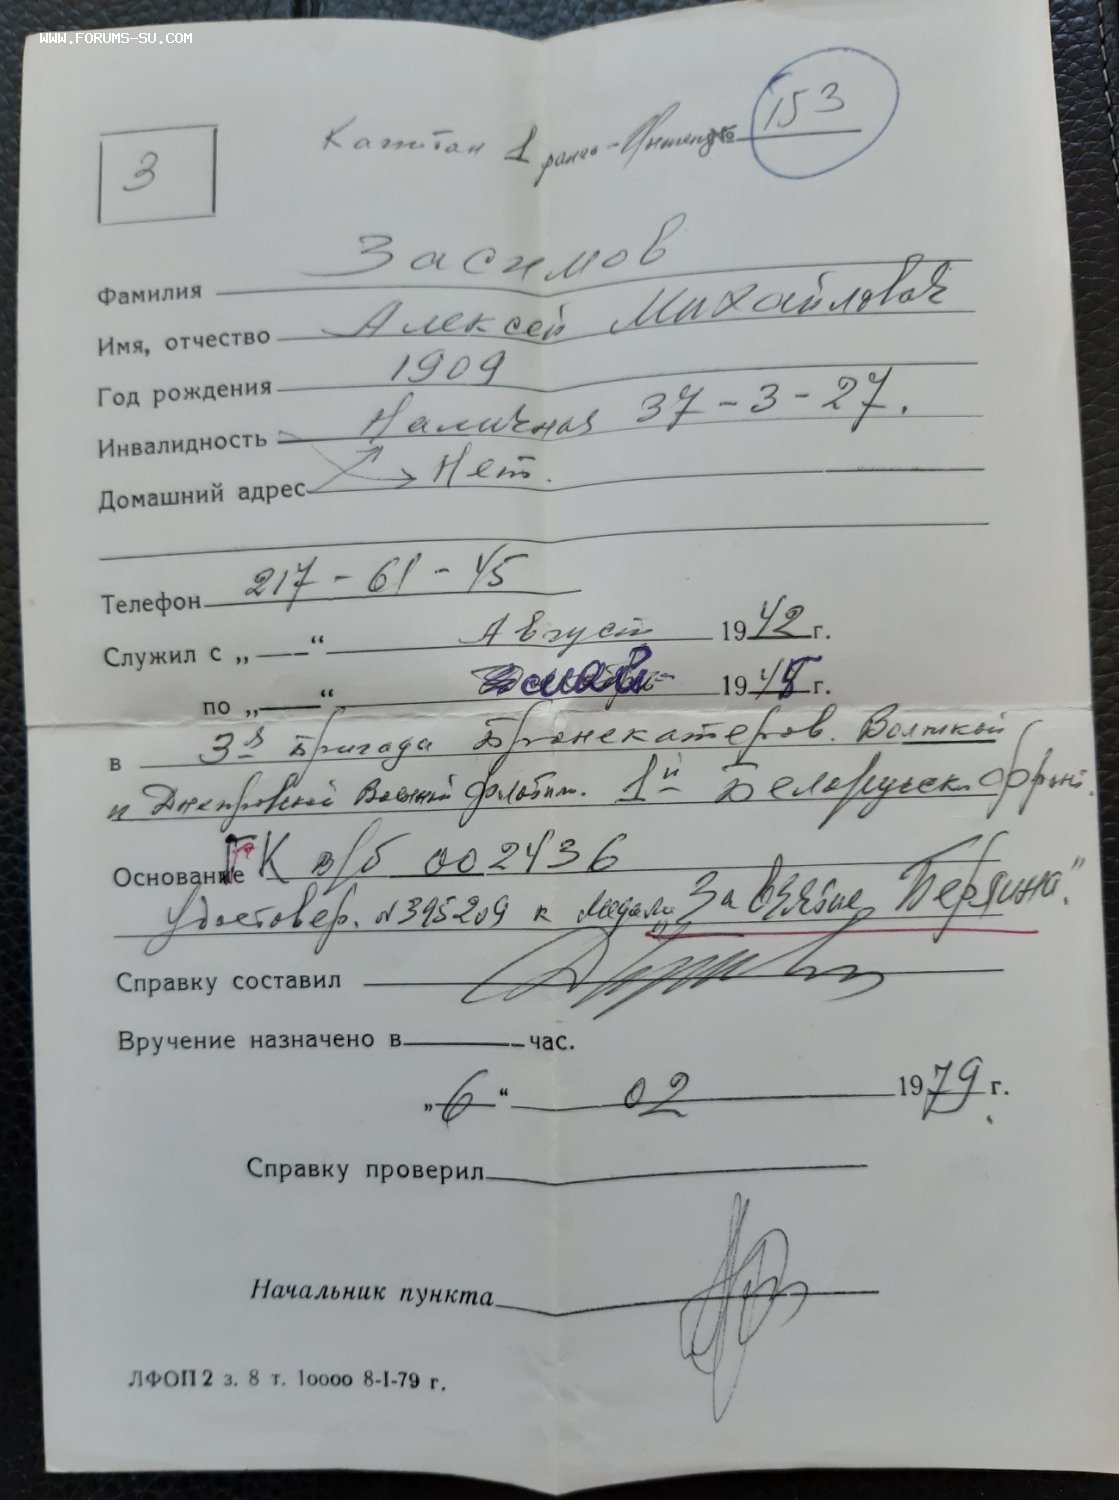 WWW.FORUMS-SU.COM
3
Капитан 1 ранга - Инженер № 153
Фамилия Засимов
Имя, отчество Алексей Михайлович
Год рождения 1909
Инвалидность Наличная 37-3-27.
Домашний адрес Нет.
Телефон 217-61-45
Служил с „ — “ Август 1942 г.
по „ — “ 1945 г.
в 3я Бригада Бронекатеров. Волжской
и Днепровской Военной флотил. 1й Белорусск. фронт.
Основание ГК в/б 002436
Удостовер. №395209 к медали „За взятие Берлина."
Справку составил
Вручение назначено в час.
„6“ 02 1979 г.
Справку проверил
Начальник пункта
ЛФОП2 з. 8 т. 10000 8-I-79 г.